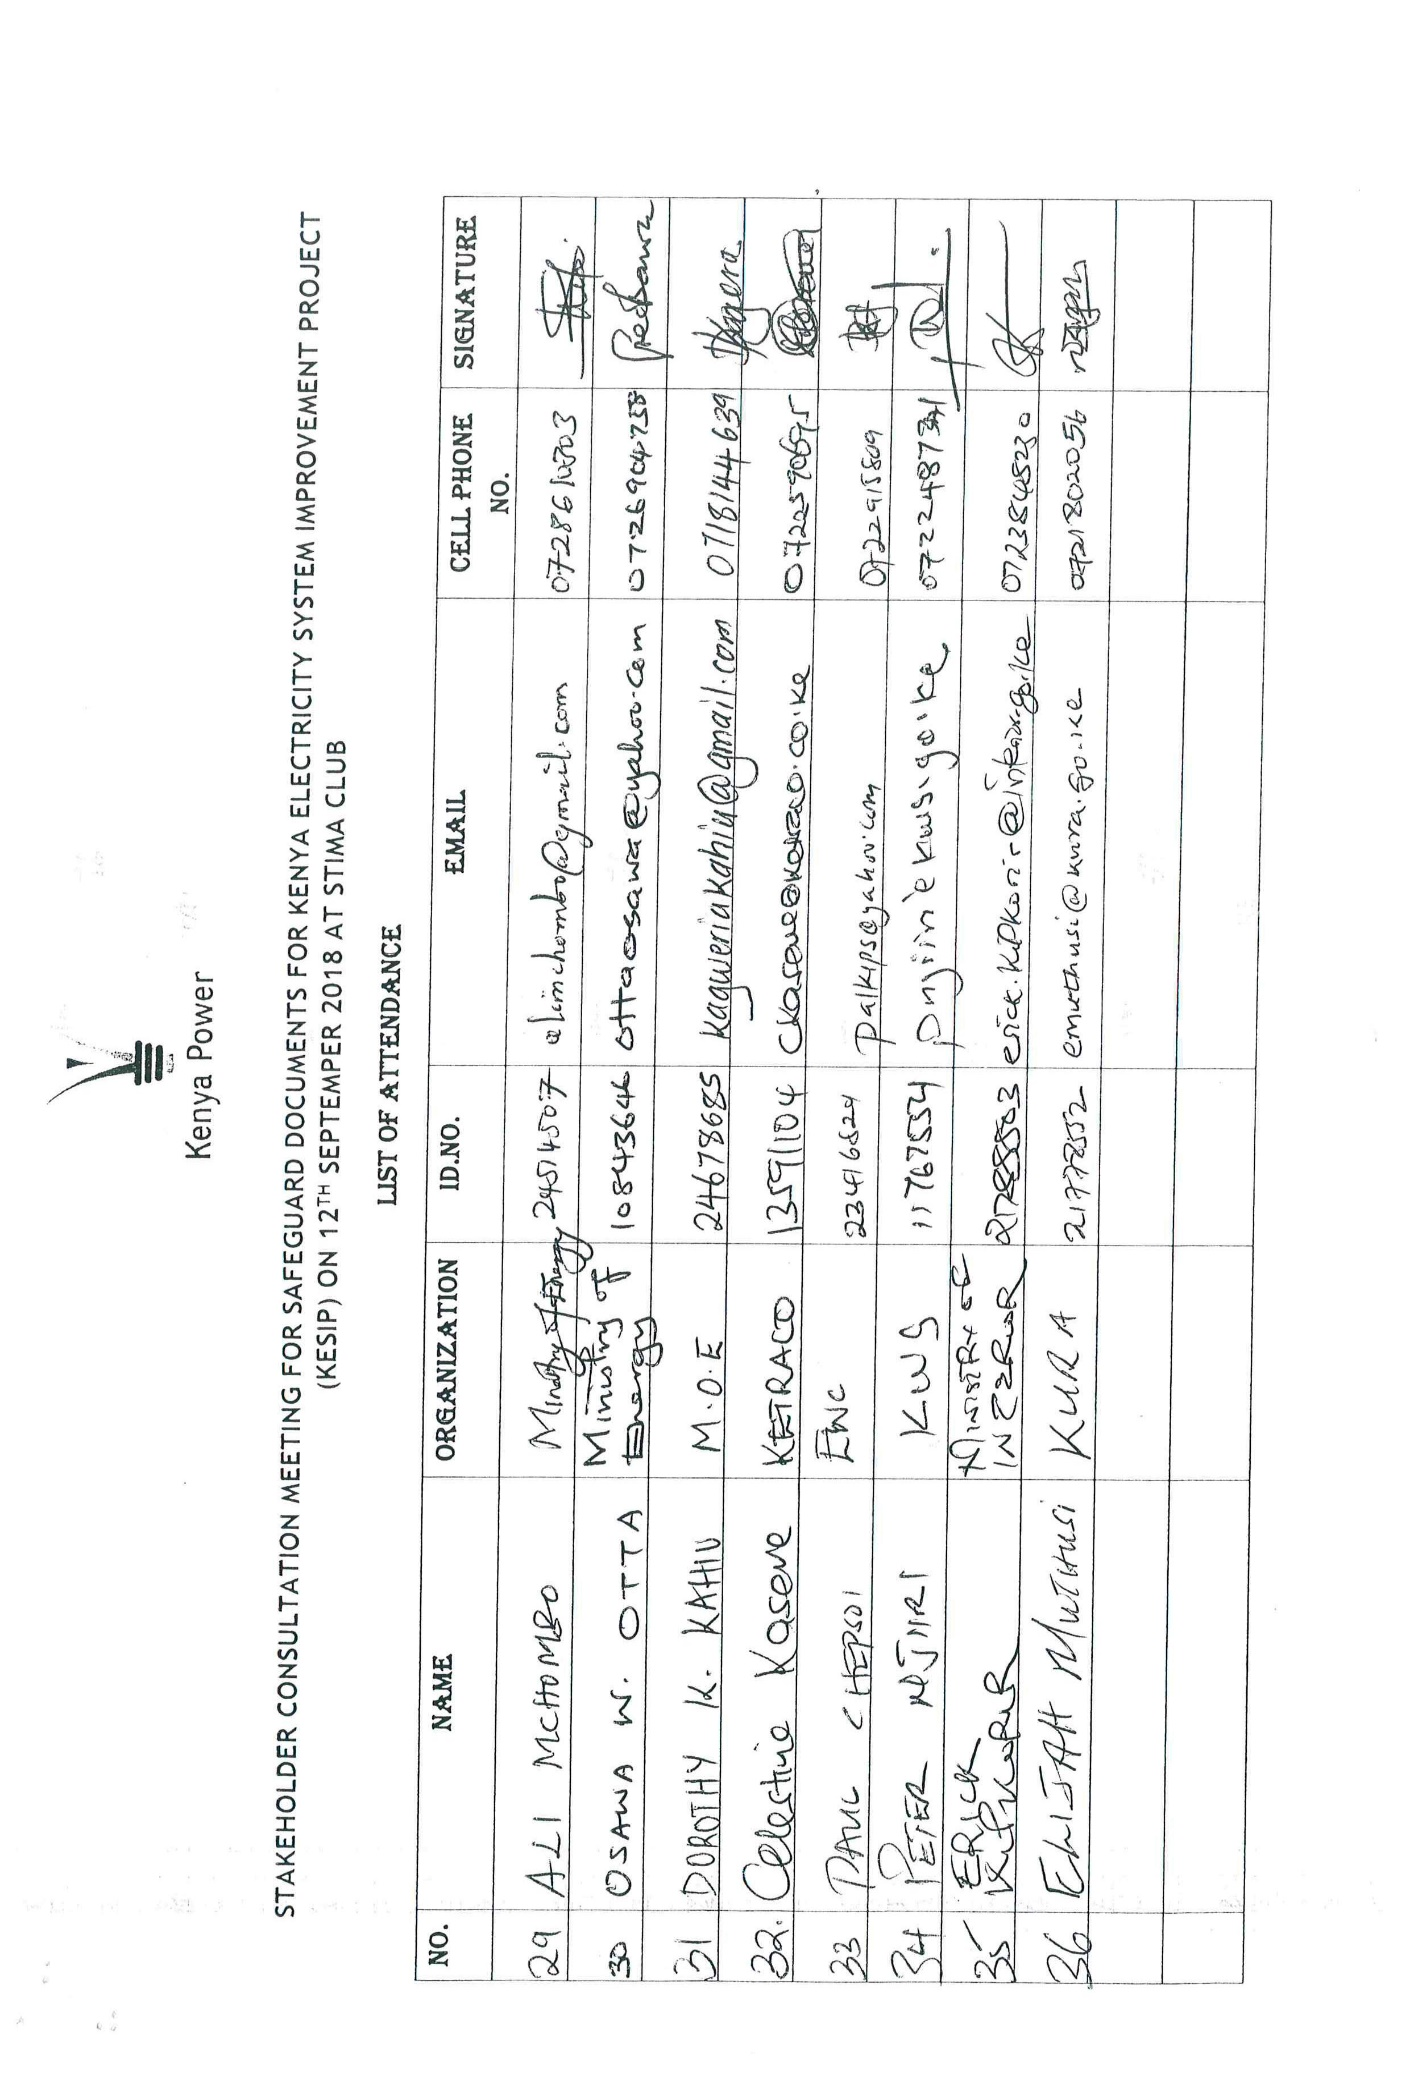 Kenya Power
STAKEHOLDER CONSULTATION MEETING FOR SAFEGUARD DOCUMENTS FOR KENYA ELECTRICITY SYSTEM IMPROVEMENT PROJECT
(KESIP) ON 12TH SEPTEMPER 2018 AT STIMA CLUB
LIST OF ATTENDANCE
NO. NAME ORGANIZATION ID.NO. EMAIL CELL PHONE NO. SIGNATURE
29 ALI MCHOMBO Ministry of Energy 24514507 alimchombo@gmail.com
30 OSAWA W. OTTA Ministry of Energy 10843646 ottaosawa@yahoo.com 0726904758
31 DOROTHY K. KAHIU M.O.E 24678685 kagweriakahiu@gmail.com 0718144639
32. Celestine Kaseve KETRACO 13591104 ckaseve@ketraco.co.ke
33 PAUL CHEPSOI 23416524 palkips@yahoo.com 0722915809
34 PETER NJIIRI KWS 11767554
35 ERICK KIPKORIR MINISTRY OF INTERIOR 0723845230
36 ELIJAH MUTHUSI KURA 21777552 emuthusi@kura.go.ke 0721802056